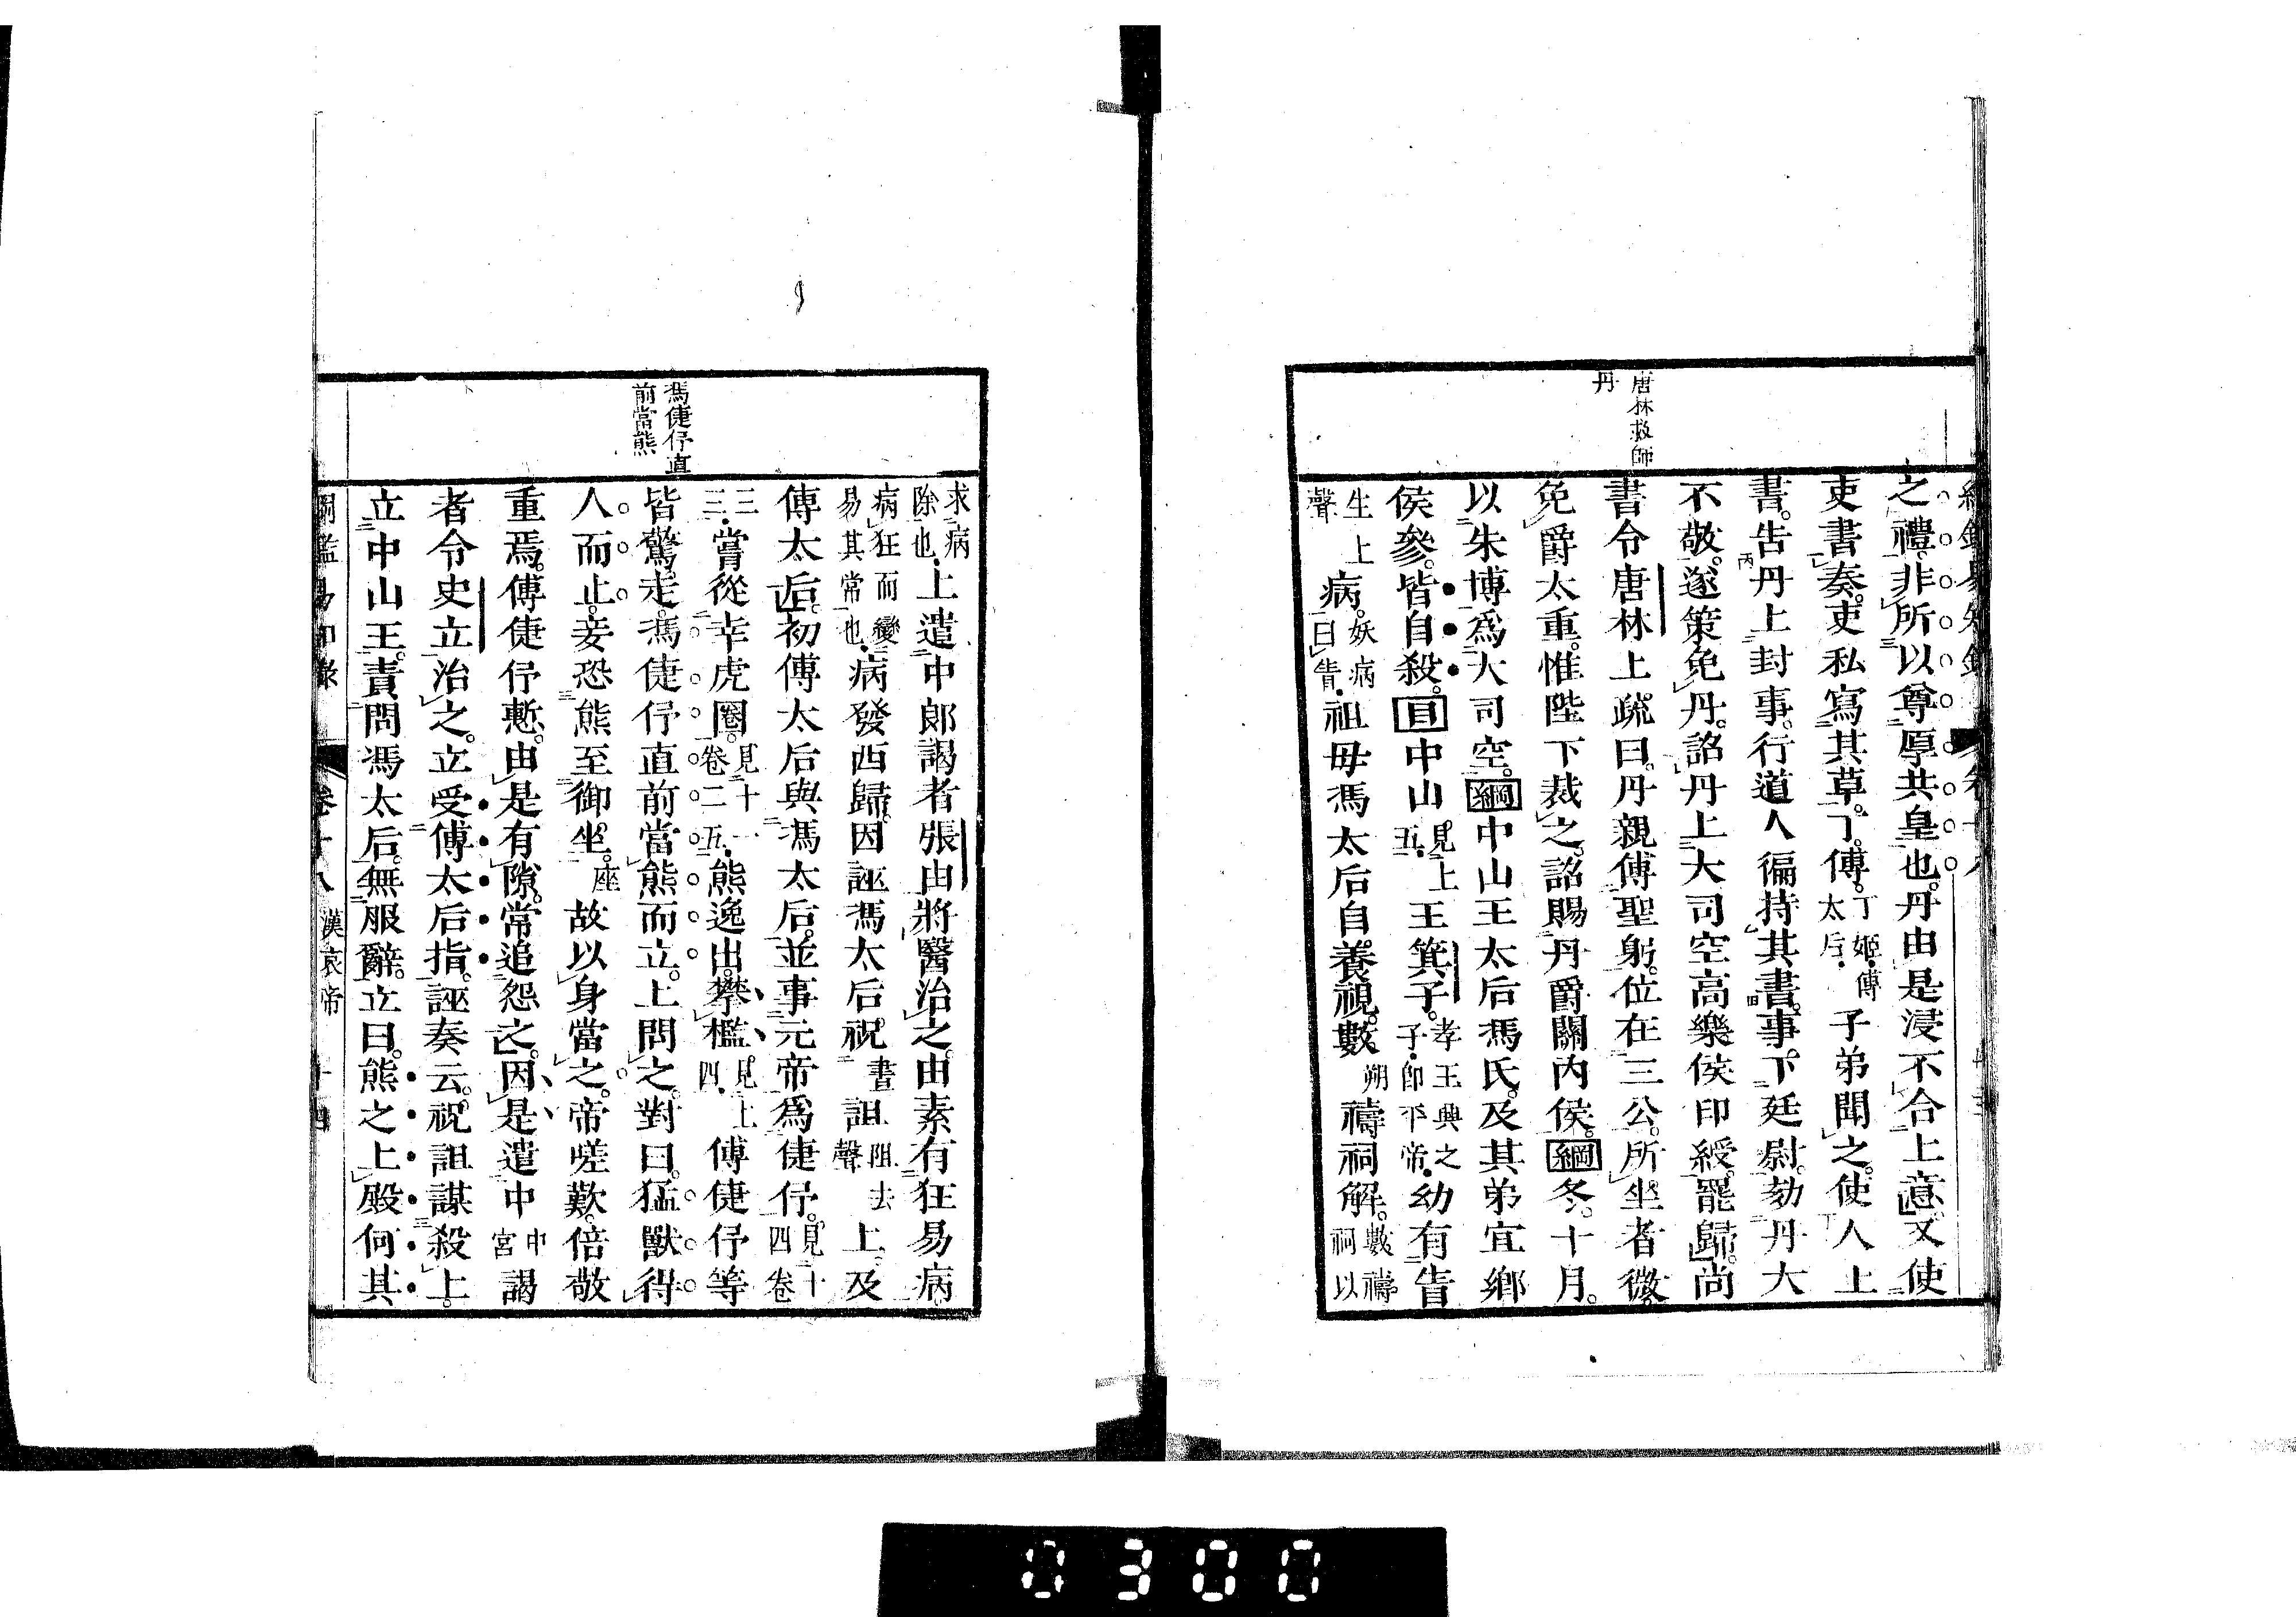 唐林救師
丹
之禮。非所以尊厚共皇也。丹由是浸不合上意。又使
吏書奏。吏私寫其草。丁。傅。丁姬・傅太后・子弟聞之。使人上
書。告丹上封事。行道人徧持其書。事下廷尉。劾丹大
不敬。遂策免丹。詔丹上大司空高樂侯印綬。罷歸。尚
書令唐林上疏曰。丹親傅聖躬。位在三公。所坐者微。
免爵太重。惟陛下裁之。詔賜丹爵關內侯。綱冬。十月。
以朱博爲大司空。綱中山王太后馮氏。及其弟宜鄉
侯參。皆自殺。目中山見上五・王箕子。孝王興之子・卽平帝・幼有眚
生上聲病。妖病曰眚・祖母馮太后自養視。數朔禱祠解。數禱祠以
馮倢伃直
前當熊
求病除也・上遣中郎謁者張由將醫治之。由素有狂易病。
病狂而變易其常也・病發西歸。因誣馮太后。祝晝詛阻去聲上。及
傅太后。初傅太后與馮太后。並事元帝爲倢伃。見十四卷
三三・嘗從幸虎圈。見十一卷二五・熊逸出。攀檻。見上四・傅倢伃等
皆驚走。馮倢伃直前當熊而立。上問之。對曰。猛獸得
人而止。妾恐熊至御坐。座故以身當之。帝嗟歎。倍敬
重焉。傅倢伃慙。由是有隙。常追怨之。因是遣中中宮謁
者令史立治之。立受傅太后指。誣奏云。祝詛謀殺上。
立中山王。責問馮太后。無服辭。立曰。熊之上殿何其
卷十八 漢哀帝 十四